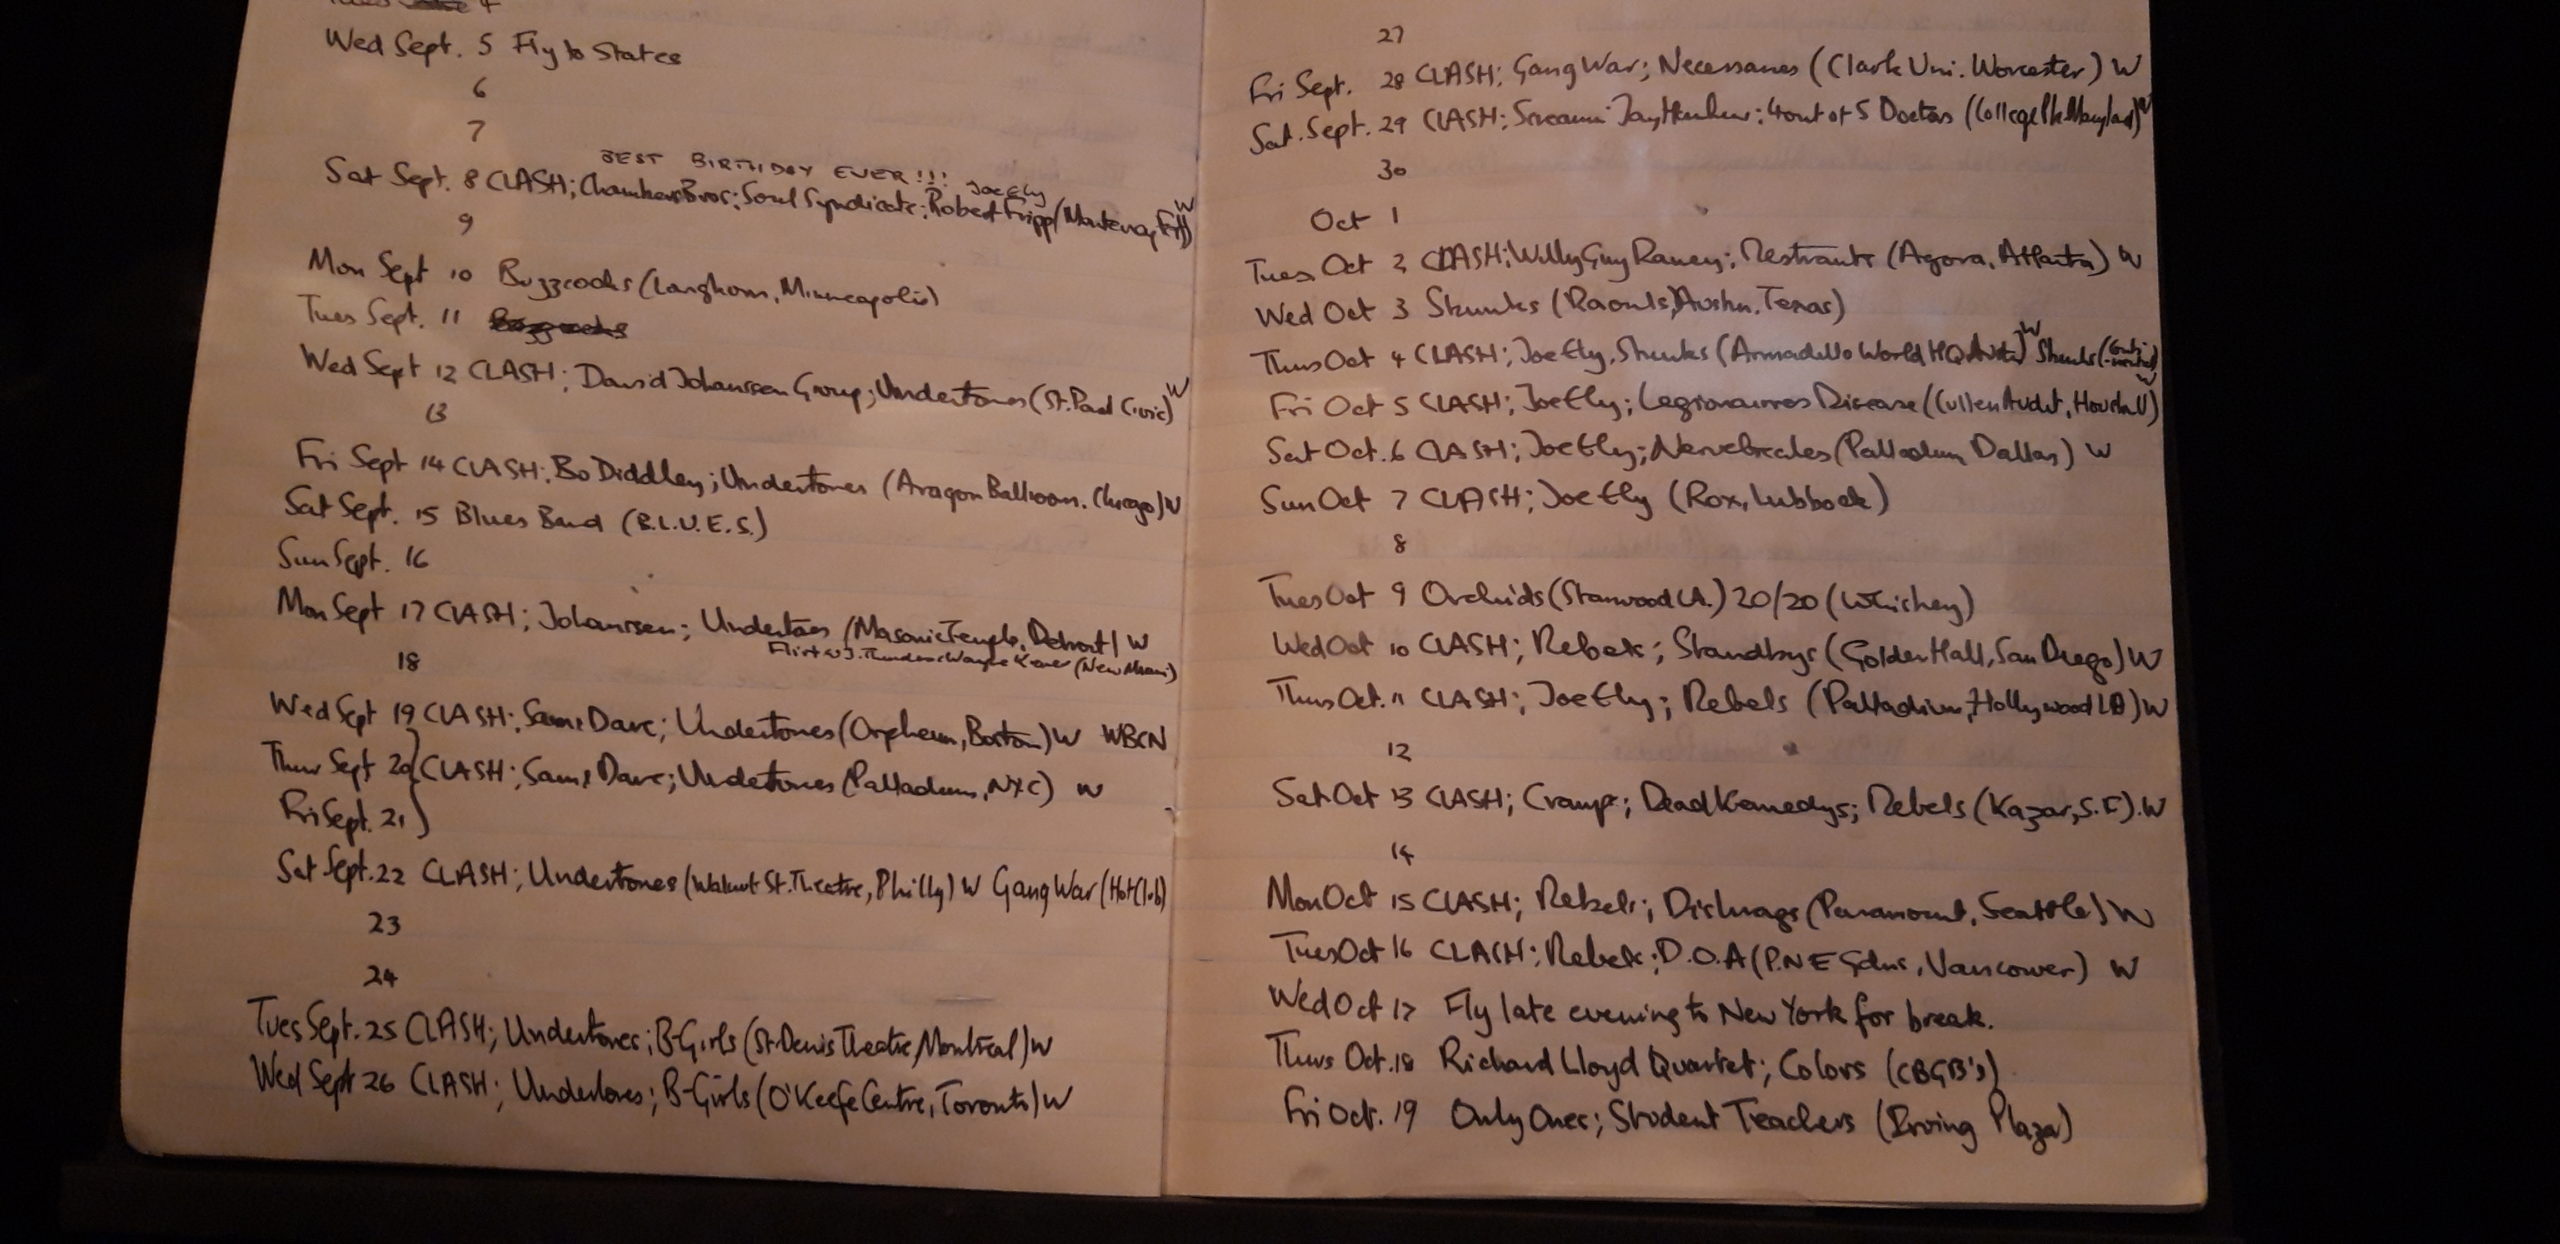 4
Wed Sept. 5 Fly to States
6
7
BEST BIRTHDAY EVER!!! Joe Ely
Sat Sept. 8 CLASH; Chambers Bros; Soul Syndicate; Robert Fripp (Monterey W
9
Mon Sept 10 Buzzcocks (Longhorn, Minneapolis)
Tues Sept. 11 Buzzcocks
Wed Sept 12 CLASH; David Johansen Group; Undertones (St. Paul Civic) W
13
Fri Sept 14 CLASH; Bo Diddley; Undertones (Aragon Ballroom. Chicago) W
Sat Sept. 15 Blues Band (B.L.U.E.S.)
Sun Sept. 16
Mon Sept 17 CLASH; Johansen; Undertones (Masonic Temple, Detroit) W
Flirt w J. Thunders Wayne Kramer (New Miami)
18
Wed Sept 19 CLASH; Sam & Dave; Undertones (Orpheum, Boston) W WBCN
Thur Sept 20 } CLASH; Sam & Dave; Undertones (Palladium, NYC) W
Fri Sept. 21 }
Sat Sept. 22 CLASH; Undertones (Walnut St. Theatre, Philly) W Gang War (Hot Club)
23
24
Tues Sept. 25 CLASH; Undertones; B-Girls (St. Denis Theatre, Montreal) W
Wed Sept 26 CLASH; Undertones; B-Girls (O'Keefe Centre, Toronto) W
27
Fri Sept. 28 CLASH; Gang War; Necessaries (Clark Uni. Worcester) W
Sat. Sept. 29 CLASH; Screamin Jay Hawkins; 4 out of 5 Doctors (College Pk Maryland) W
30
Oct 1
Tues Oct 2 CLASH; Willy Guy Rainey; Restraints (Agora, Atlanta) W
Wed Oct 3 Skunks (Raouls, Austin. Texas)
Thurs Oct 4 CLASH; Joe Ely, Skunks (Armadillo World HQ Austin) W Skunks
Fri Oct 5 CLASH; Joe Ely; Legionaires Disease (Cullen Audit, Houston) W
Sat Oct. 6 CLASH; Joe Ely; Nervebreakers (Palladium Dallas) W
Sun Oct 7 CLASH; Joe Ely (Rox, Lubbock)
8
Tues Oct 9 Orchids (Starwood LA.) 20/20 (Whiskey)
Wed Oct 10 CLASH; Rebels; Standbys (Golden Hall, San Diego) W
Thurs Oct. 11 CLASH; Joe Ely; Rebels (Palladium, Hollywood LA) W
12
Sat Oct 13 CLASH; Cramps; Dead Kennedys; Rebels (Kazar, S.F). W
14
Mon Oct 15 CLASH; Rebels; Dishrags (Paramount, Seattle) W
Tues Oct 16 CLASH; Rebels; D.O.A (P.N E Gdns, Vancouver) W
Wed Oct 17 Fly late evening to New York for break.
Thurs Oct. 18 Richard Lloyd Quartet; Colors (CBGB's)
Fri Oct. 19 Only Ones; Student Teachers (Irving Plaza)